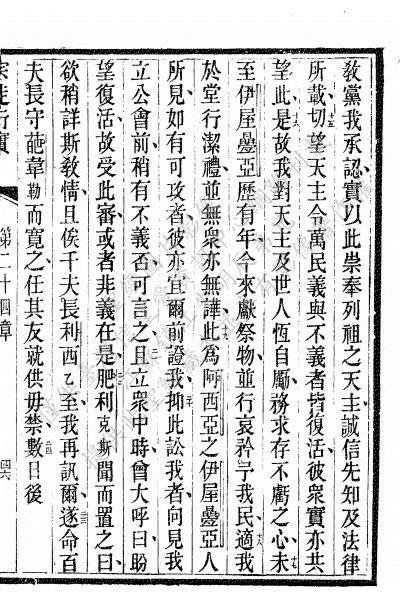 教黨我承認實以此崇奉列祖之天主誠信先知及法律
所載切望天主令萬民義與不義者皆復活彼眾實亦共
望此是故我對天主及世人恆自勵務求存不虧之心未
至伊屋壘亞歷有年今來獻祭物並行哀矜于我民適我
於堂行潔禮並無眾亦無譁此為阿西亞之伊屋壘亞人
所見如有可攻者彼亦宜爾前證我抑此訟我者向見我
立公會前稍有不義否可言之且立眾中時曾大呼曰盼
望復活故受此審或者非義在是肥利克斯聞而置之曰
欲稍詳斯教情且俟千夫長利西乙至我再訊爾遂命百
夫長守葩韋勒而寬之任其友就供毋禁數日後
宗徒行實
第二十四章
四六